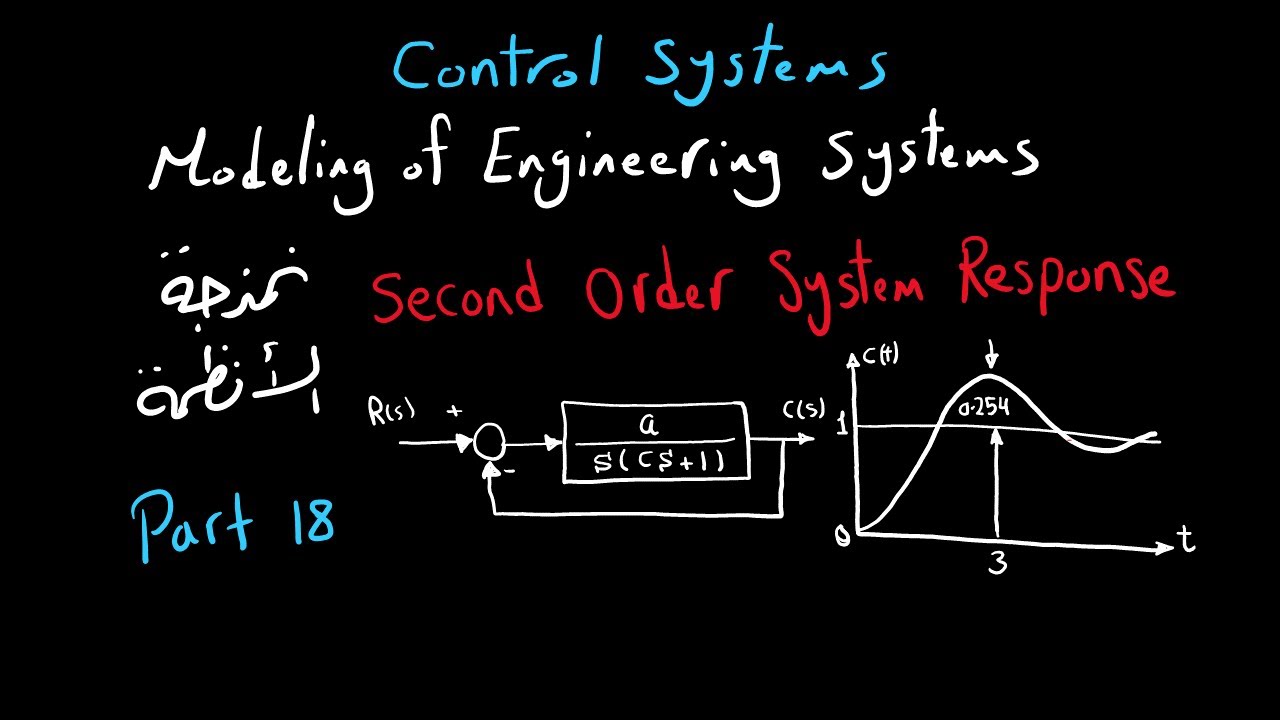 Control Systems
Modeling of Engineering Systems
نمذجة
الأنظمة
Second Order System Response
Part 18
R(s)
+
-
a
s(cs+1)
C(s)
C(t)
0.254
1
0
3
t